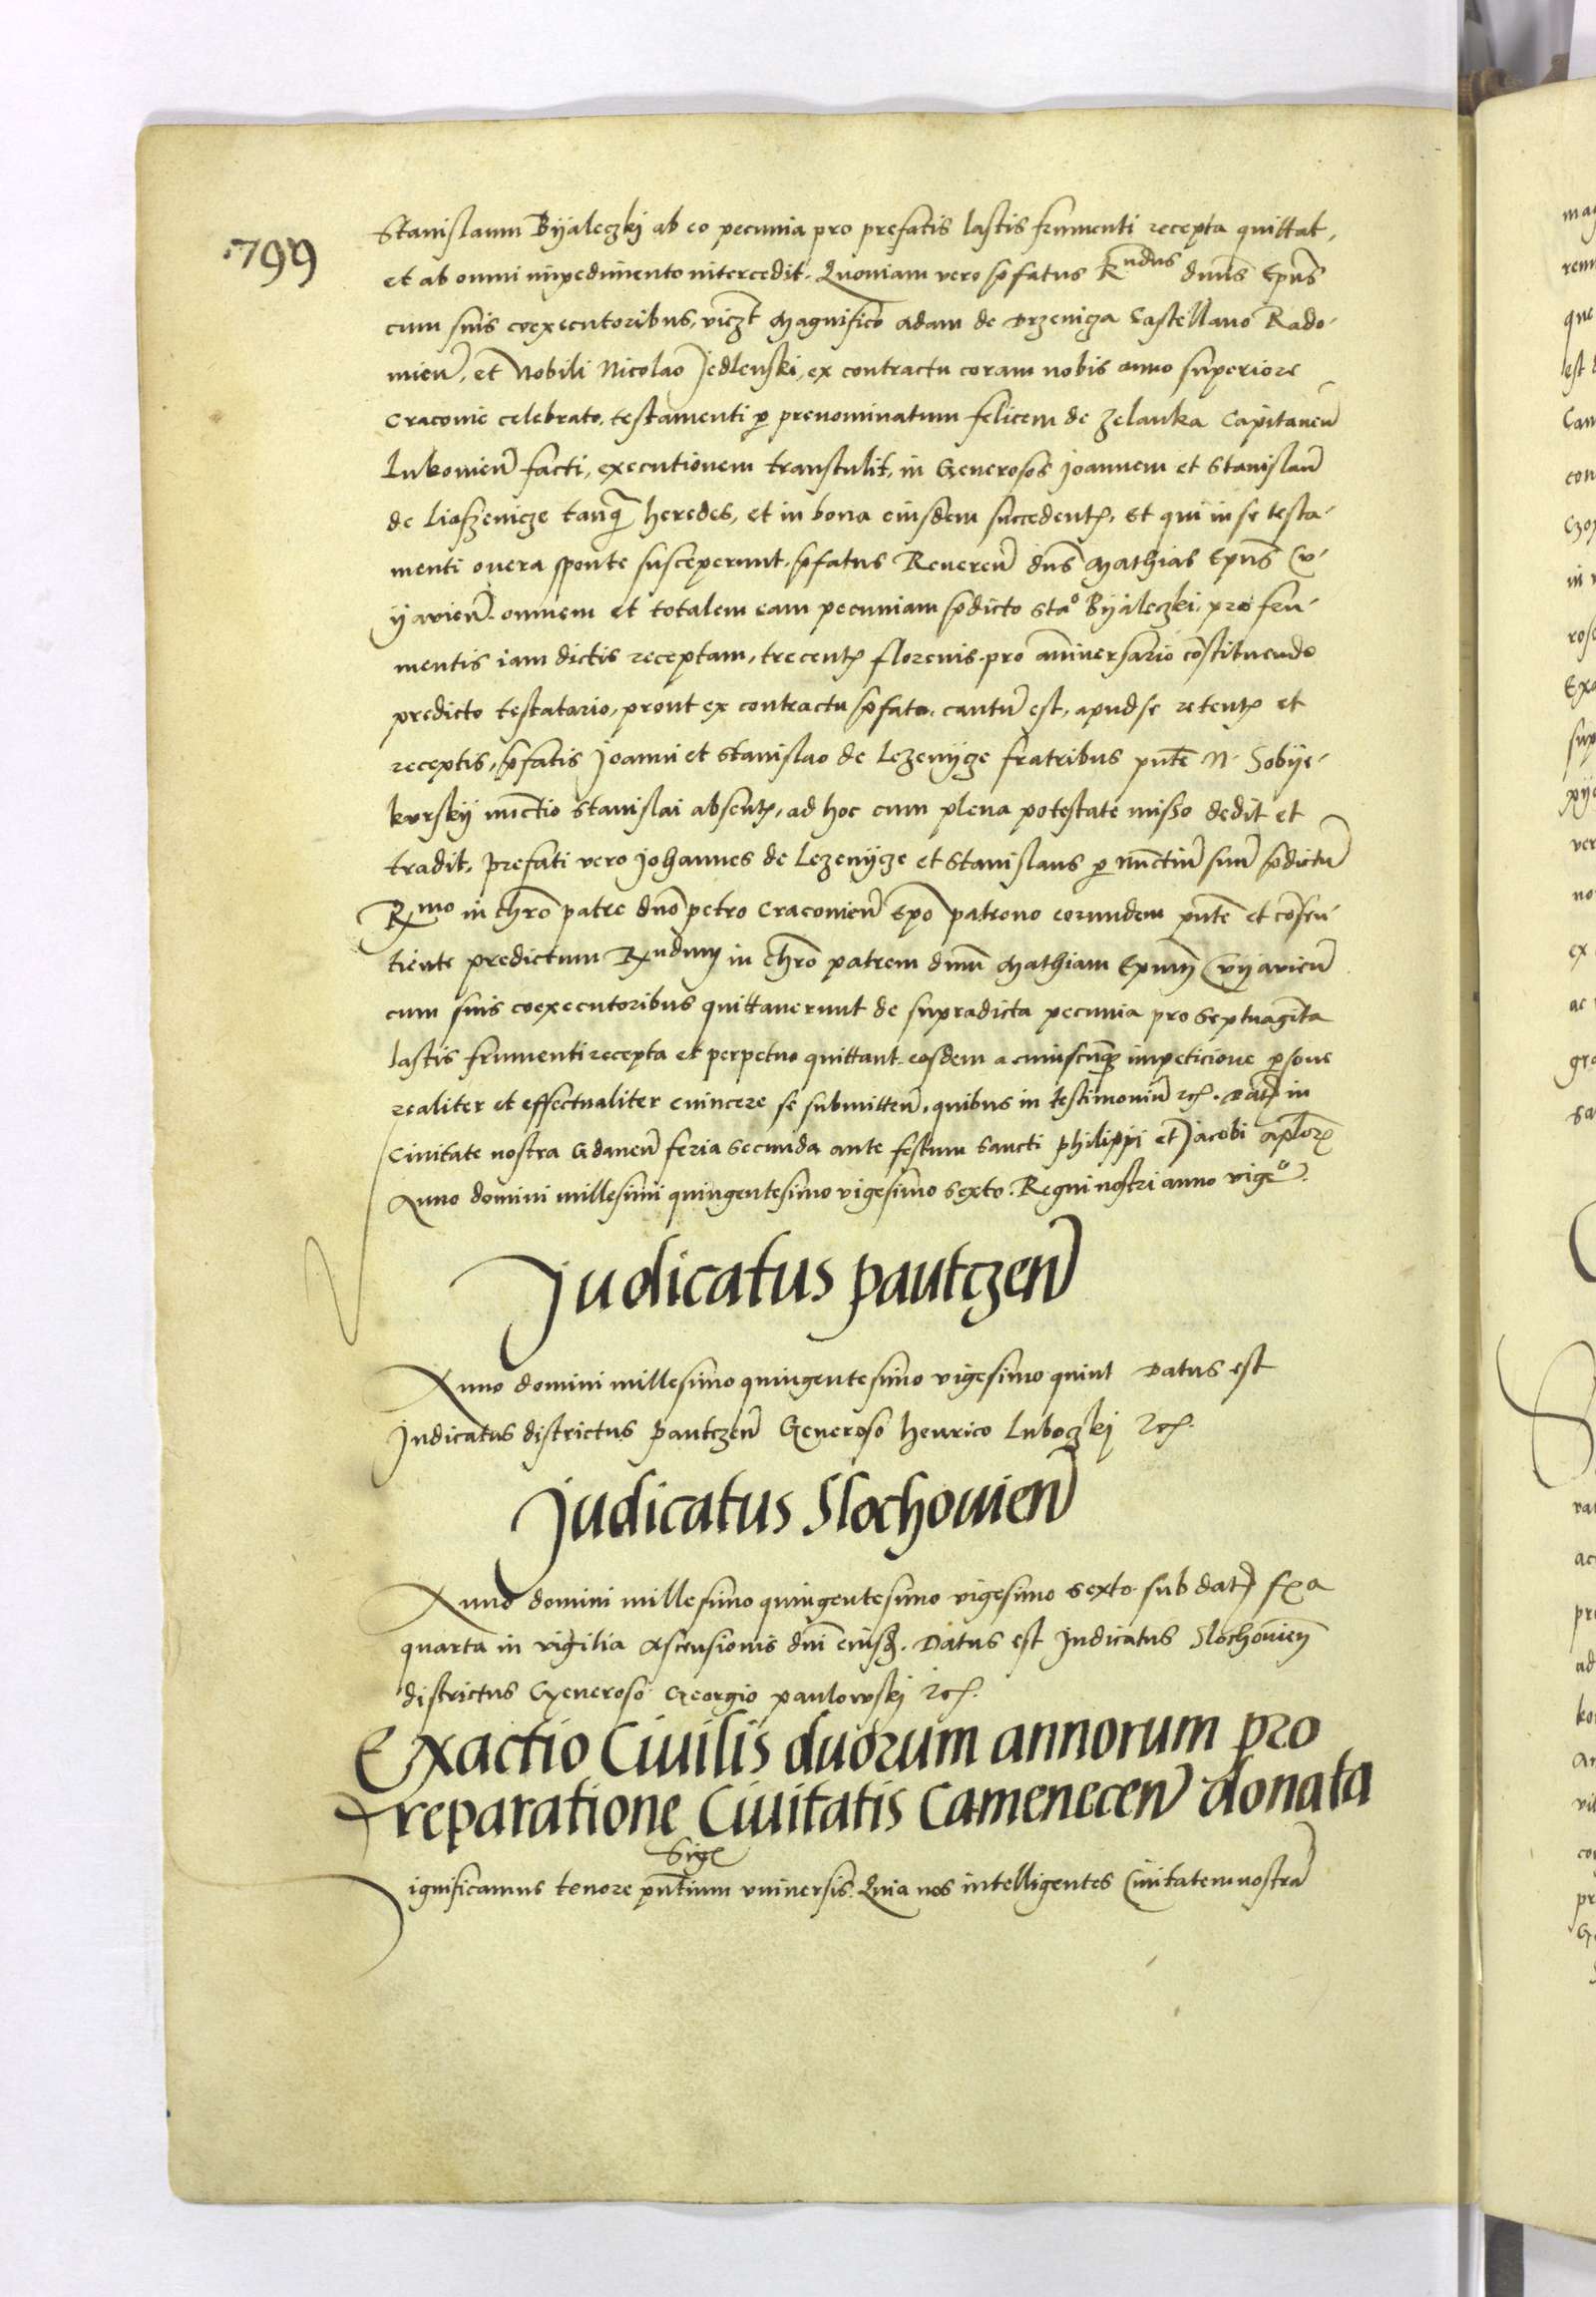 799
Stanislaum Byaleczkj ab eo pecunia pro prefatis lastis frumenti recepta quittat,
et ab omni impedimento intercedit. Quoniam vero p̄fatus Rundus dnus̄ Epus̄
cum suis coexecutoribus, viczt Magnifico Adam de Drzenicza Castellano Rado-
mien̄, et Nobili Nicolao Jedlenski, ex contractu coram nobis anno superiore
Cracovie celebrato, testamenti p̲ prenominatum felicem de Zelanka Capitaneū
Lukovien̄ facti, executionem transtulit, in Generosos Joannem et Stanislaū
de Liaszenicze tanq̄ heredes, et in bona eiusdem succedentꝭ, et qui in se testa-
menti onera sponte susceperunt, p̄fatus Reueren̄ dns̄ Mathias Epus̄ Cu-
yavien̄. omnem et totalem eam pecuniam p̄dicto Stao Byaleczki, pro fru-
mentis iam dictis receptam, trecentꝭ florenis. pro aniversario cōstituendo
predicto testatorio, prout ex contractu p̄fato. cautū est, apud se retentꝭ et
receptis, p̄fatis Joanni et Stanislao de Lezenycze fratribus pn̄te N. Sobye-
kursky nūctio Stanislai absentꝭ, ad hoc cum plena potestate misso dedit et
tradit. Prefati vero Johannes de Lezenycze et Stanislaus p̲ nūctiū suū p̄dictū
Rmo in chrō patre dnō petro Cracovien̄ Epō patrono eorumdem pn̄te et cōsen-
tiente predictum Rxndum in chrō patrem dnū Mathiam Epum̄ Cuyavien̄
cum suis coexecutoribus quittaverunt de supradicta pecunia pro septuagīta
lastis frumenti recepta et perpetuo quittant. eosdem a cuiuscūq̄ impeticione p̲sone
realiter et effectualiter evincere se submitten̄, quibus in testimoniū ꝛcꝭ. Datꝭ in
Civitate nostra Gdanen̄ feria secunda ante festum sancti Philippi et Jacobi aplorꝭ
Anno domini millesimi quingentesimo vigesimo sexto. Regni nostri anno vigeo.
Judicatus pautczen̄
Anno domini millesimo quingentesimo vigesimo quint Datus est
Judicatus districtus pautczen̄ Generoso Henrico Luboczkj ꝛcꝭ.
Judicatus Slochouien̄
Anno domini millesimo quingentesimo vigesimo sexto sub datꝭ fꝭa
quarta in vigilia Ascensionis dnī eiusꝺ. Datus est Judicatus Slochouien̄
districtus Generoso Georgio paulowskj ꝛcꝭ.
Exactio Ciuilis duorum annorum pro
reparatione Ciuitatis Camenecen̄ donata
Sigꝭ
ignificamus tenore pn̄tium vniuersis. Quia nos intelligentes Ciuitatem nostrā